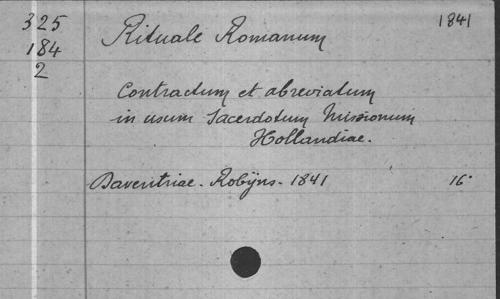 325 Rituale Romanum 1841
184
2
Contractum et abreviatum
in usum Sacerdotum Missionum
Hollandiae.
Daventriae. Robijns. 1841 16°